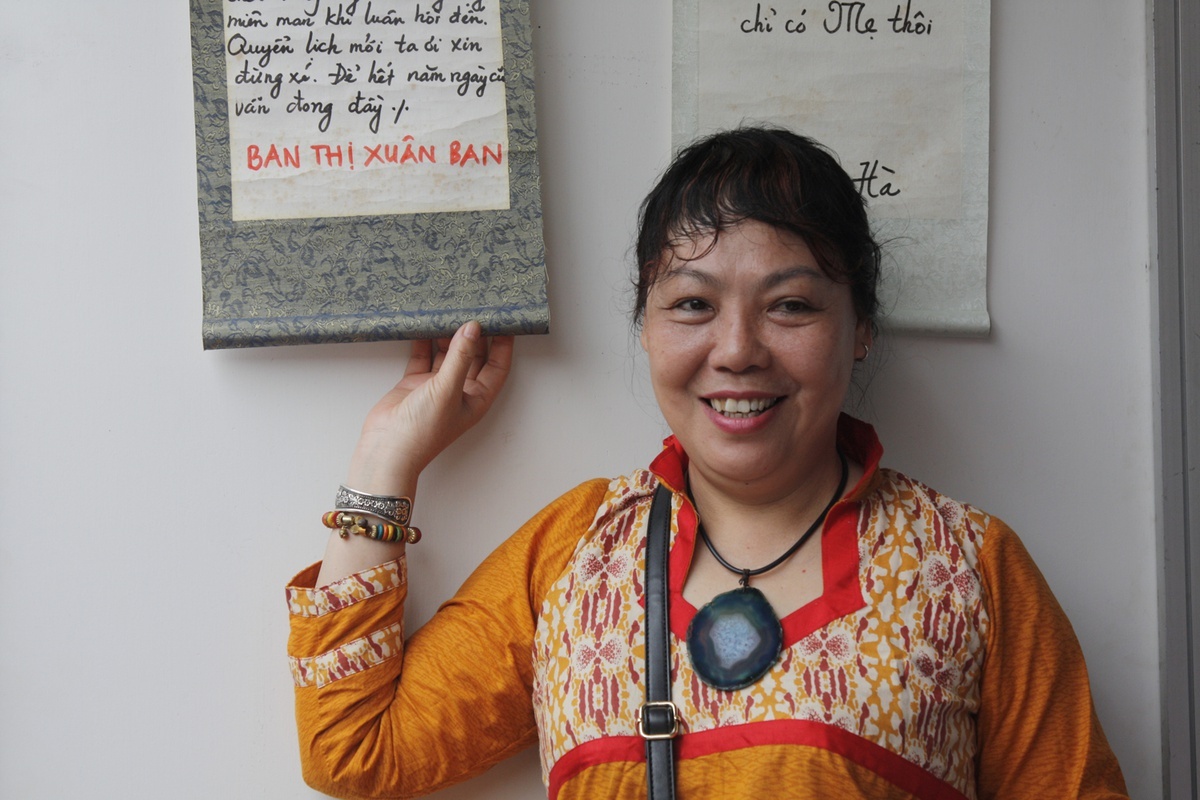 miên man khi luân hồi đến.
Quyển lịch mới ta ơi xin
đừng xé. Để hết năm ngày cũ
vẫn đong đầy ./.
BAN THỊ XUÂN BAN
chỉ có Mẹ thôi
Hà